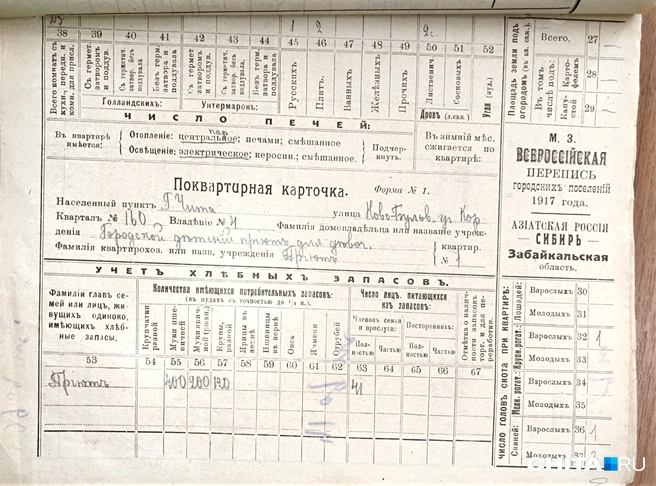 38 39 40 41 42 43 44 45 46 47 48 49 50 51 52
1 2 2с.
Всего комнат съ кухн., передн. и комн. для присл.
Съ гермет. затворомъ и поддув.
Съ герметич. затвор. безъ поддувала
Безъ герм. затвора и поддувала
Съ гермет. затвором и поддув.
Съ герметич. затвор. безъ поддувала
Безъ герм. затвора и поддувала
Русскихъ
Плитъ.
Ванныхъ
Желѣзныхъ
Прочихъ
Лиственич.
Сосновыхъ
Угля (пуд.)
Голландскихъ:
Унтермаркъ:
Дровъ (л.саж.)
ЧИСЛО ПЕЧЕЙ:
Въ квартирѣ имѣется:
Отопленіе: центральное; печами; смѣшанное
Освѣщеніе: электрическое; керосин.; смѣшанное.
Подчеркнуть.
Въ зимній мѣс. сжигается по квартирѣ:
Поквартирная карточка. Форма № 1.
Населенный пунктъ Г. Чита улица Ново-Бульв. уг. Кор.
Кварталъ № 160 Владѣніе № 4 Фамилія домовладельца или названіе учрежденія
Городской дѣтскій пріютъ для дѣвоч.
Фамилія квартирохоз. или назв. учрежденія Пріютъ
квартир. № 1
УЧЕТЪ ХЛѢБНЫХЪ ЗАПАСОВЪ.
Фамиліи главъ семей или лицъ, живущихъ одиноко, имѣющихъ хлѣбные запасы.
Количества имѣющихся потребительныхъ запасовъ:
(въ пудахъ съ точностью до 1/4 п.)
Крупчатки разной
Муки пшеничной
Муки ржаной
Крупы, разной
Ярицы въ зернѣ
Пшеницы въ зернѣ
Овса
Ячменя
Отрубей
Число лицъ, питающихся изъ запасовъ:
Членовъ семьи и прислуги:
Постороннихъ:
Полностью
Частью
Полностью
Частью
Отмѣтка о наличности запасовъ торг. и для переработки.
53 54 55 56 57 58 59 60 61 62 63 64 65 66 67
Пріютъ 400 200 140 41
Площадь земли подъ огородомъ (въ кв. саж.).
Всего. 27
Въ томъ числѣ подъ:
Картофелемъ 28
Капустой 29
М. З.
ВСЕРОССІЙСКАЯ
ПЕРЕПИСЬ
городскихъ поселеній
1917 года.
АЗІАТСКАЯ РОССІЯ
СИБИРЬ
Забайкальская
область.
ЧИСЛО ГОЛОВЪ СКОТА ПРИ КВАРТИРѢ:
Лошадей:
Взрослыхъ 30
Молодыхъ 31
Крупн. рогат.:
Взрослыхъ 32 1
Молодыхъ 33
Мелк. рогат.:
Взрослыхъ 34
Молодыхъ 35
Свиней:
Взрослыхъ 36 1
Молодыхъ 37
CHITA.RU